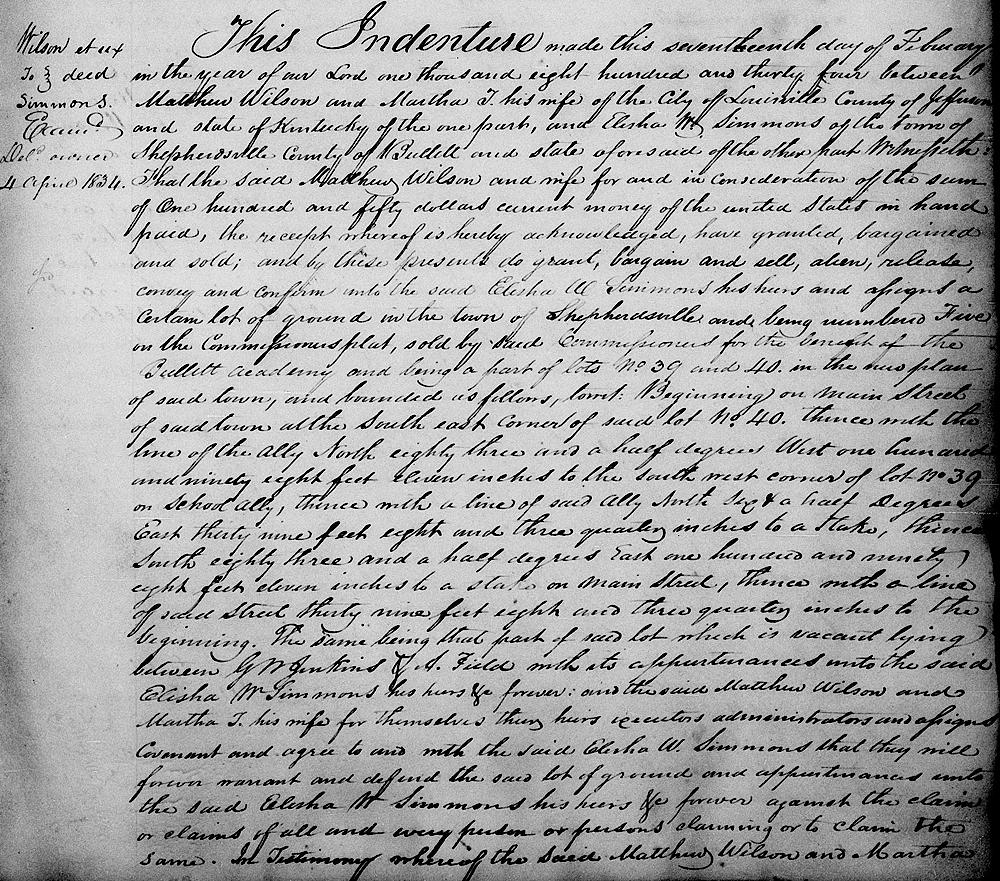 Wilson et ux
To } deed
Simmons.
Exam.d
Del.d owner
4 April 1834.
This Indenture made this seventeenth day of Febuary
in the year of our Lord one thousand eight hundred and thirty four between
Matthew Wilson and Martha T. his wife of the City of Louisville County of Jefferson
and state of Kentucky of the one part, and Elisha W. Simmons of the town of
Shepherdsville County of Bullitt and state aforesaid of the other part Witnesseth:
That the said Matthew Wilson and wife for and in consideration of the sum
of One hundred and fifty dollars current money of the united States in hand
paid, the receipt whereof is hereby acknowledged, have granted, bargained
and sold; and by these presents do grant, bargain and sell, alien, release,
convey and confirm unto the said Elisha W Simmons his heirs and assigns a
certain lot of ground in the town of Shepherdsville and being numberd Five
on the Commissioners plat, sold by said Commissioners for the benefit of the
Bullitt academy and being a part of lots No. 39 and 40. in the new plan
of said town, and bounded as follows, towit: Beginning on Main Street
of said town at the South east corner of said lot No. 40. thence with the
line of the Ally North eighty three and a half degrees West one hundred
and ninety eight feet eleven inches to the south west corner of lot No 39
on School Ally, thence with a line of said Ally North Six & a half Degrees
East thirty nine feet eight and three quarter inches to a Stake, thence
South eighty three and a half degrees East one hundred and ninety
eight feet eleven inches to a stake on Main Street, thence with a line
of said Street thirty nine feet eight and three quarter inches to the
beginning. The same being that part of said lot which is vacant lying
between G W Jenkins & A. Field with its appurtenances unto the said
Elisha W Simmons his heirs &c forever: and the said Matthew Wilson and
Martha T. his wife for themselves their heirs executors administrators and assigns
Covenant and agree to and with the said Elisha W. Simmons that they will
forever warrant and defend the said lot of ground and appurtenances unto
the said Elisha W Simmons his heirs &c forever against the claim
or claims of all and every person or persons claiming or to claim the
same. In Testimony whereof the said Matthew Wilson and Martha